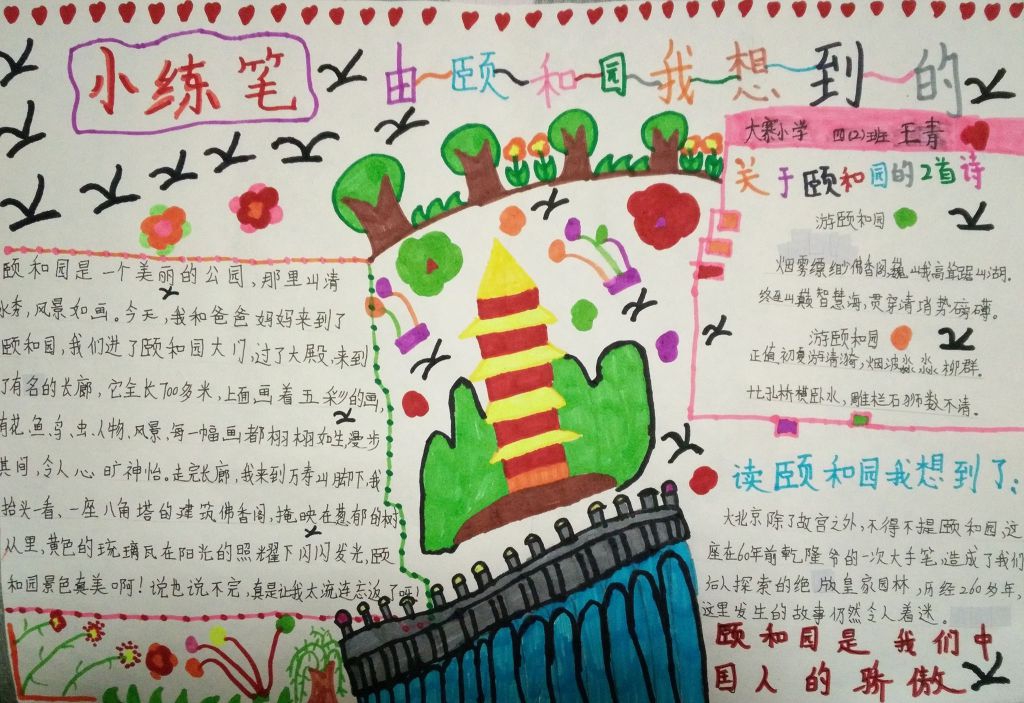 小练笔
由颐和园我想到的
大寨小学 四(2)班 王青
颐和园是一个美丽的公园,那里山清
水秀,风景如画。今天,我和爸爸妈妈来到了
颐和园,我们进了颐和园大门,过了大殿,来到
了有名的长廊,它全长700多米,上面画着五彩的画,
有花、鱼、鸟、虫、人物、风景、每一幅画都栩栩如生,漫步
其间,令人心旷神怡。走完长廊,我来到万寿山脚下,我
抬头一看、一座八角塔的建筑佛香阁,掩映在葱郁的树
从里,黄色的琉璃瓦在阳光的照耀下闪闪发光,颐
和园景色真美啊!说也说不完,真是让我太流连忘返了呀!
关于颐和园的2首诗
游颐和园
烟雾缥缈佛香阁,巍峨高耸踞山湖。
终是山巅智慧海,贯穿清消势磅礴。
游颐和园
正值初夏游清漪,烟波淼淼柳群。
廿孔桥横卧水,雕栏石狮数不清。
读颐和园我想到了:
大北京除了故宫之外,不得不提颐和园,这
座在60年前乾隆爷的一次大手笔,造成了我们
后人探索的绝版皇家园林,历经260多年,
这里发生的故事仍然令人着迷。
颐和园是我们中
国人的骄傲